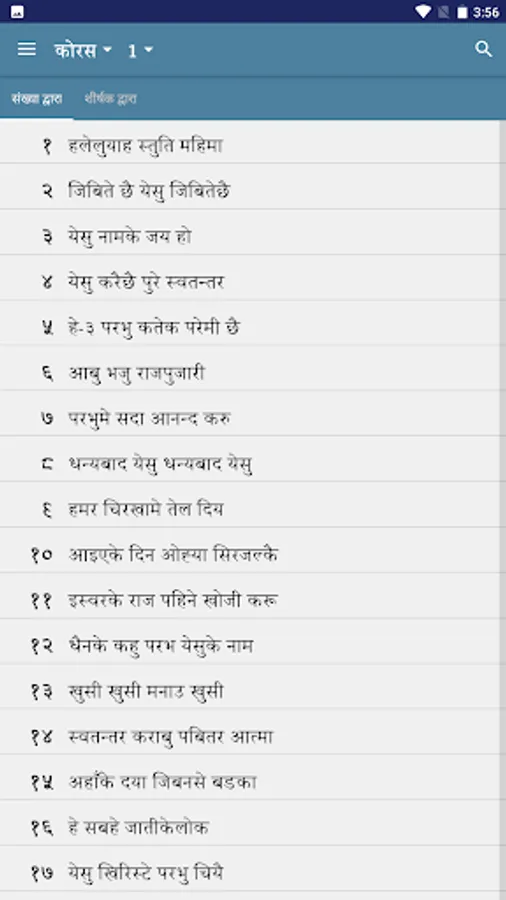 3:56
कोरस 1
संख्या द्वारा शीर्षक द्वारा
१ हलेलुयाह स्तुति महिमा
२ जिबिते छै येसु जिबितेछै
३ येसु नामके जय हो
४ येसु करैछै पुरे स्वतन्तर
५ हे-३ परभु कतेक परेमी छै
६ आबु भजु राजपुजारी
७ परभुमे सदा आनन्द करु
८ धन्यबाद येसु धन्यबाद येसु
९ हमर चिरखामे तेल दिय
१० आइएके दिन ओह्या सिरजल्कै
११ इस्वरके राज पहिने खोजी करू
१२ धैनके कहु परभ येसुके नाम
१३ खुसी खुसी मनाउ खुसी
१४ स्वतन्तर कराबु पबितर आत्मा
१५ अहाँके दया जिबनसे बडका
१६ हे सबहे जातीकेलोक
१७ येसु खिरिस्टे परभु चियै